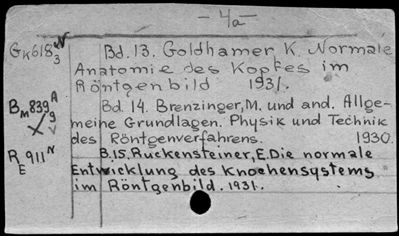 - 4a -
GK618 N/3 Bd. 13. Goldhamer K. Normale
Anatomie des Kopfes im
Röntgenbild 1931.
BM839 A/9 Bd. 14. Brenzinger, M. und and. Allge-
meine Grundlagen. Physik und Technik
des Röntgenverfahrens. 1930.
R 911 N/E B.15. Ruckensteiner, E. Die normale
Entwicklung des Knochensystems
im Röntgenbild. 1931.